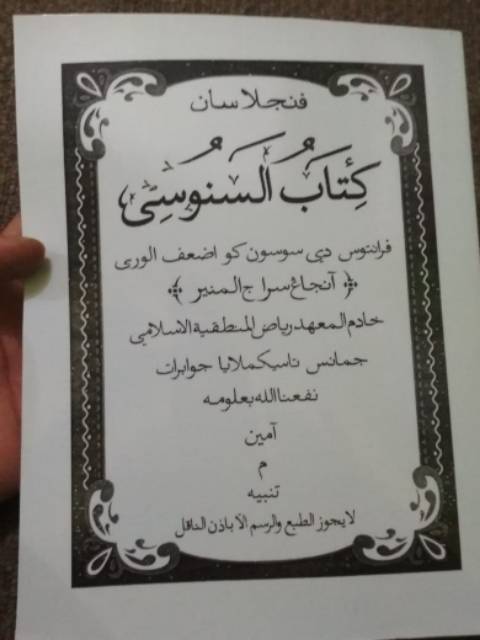 فنجلاسان
كِتَابُ السَنُوسِى
فرانتوس دي سوسون كو اضعف الورى
﴿ آنجاغ سراج المنير ﴾
خادم المعهد رياض المنطقية الاسلامي
جمانس تاسيكملايا جوابرات
نفعنا الله بعلومه
آمين
م
تنبيه
لا يجوز الطبع والرسم الا باذن الناقل